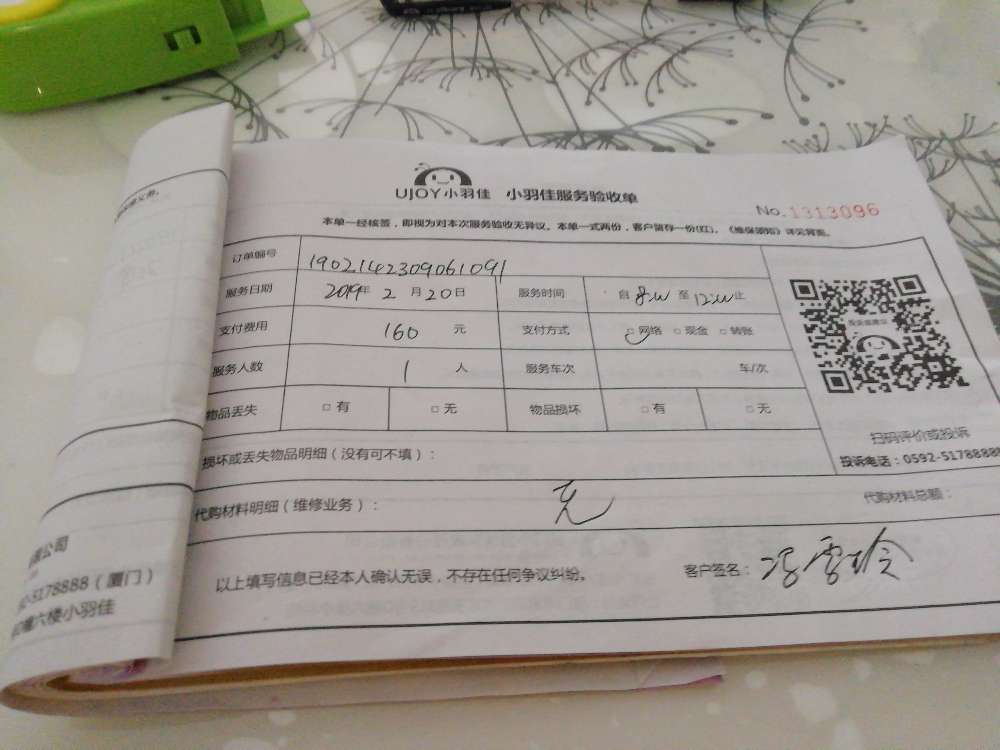 UJOY小羽佳 小羽佳服务验收单
No.1313096
本单一经核签，即视为对本次服务验收无异议。本单一式两份，客户留存一份(红)。《维保须知》详见背面。
订单编号 1902142309061091
服务日期 2019年 2月20日 服务时间 自8:00至12:00止
支付费用 160元 支付方式 □网络 □现金 □转账
服务人数 1人 服务车次 车/次
物品丢失 □有 □无 物品损坏 □有 □无
扫码评价或投诉
投诉电话：0592-5178888
损坏或丢失物品明细（没有可不填）：
代购材料明细（维修业务）： 无 代购材料总额：
以上填写信息已经本人确认无误，不存在任何争议纠纷。 客户签名：冯雪玲
公司
-5178888（厦门）
六楼小羽佳